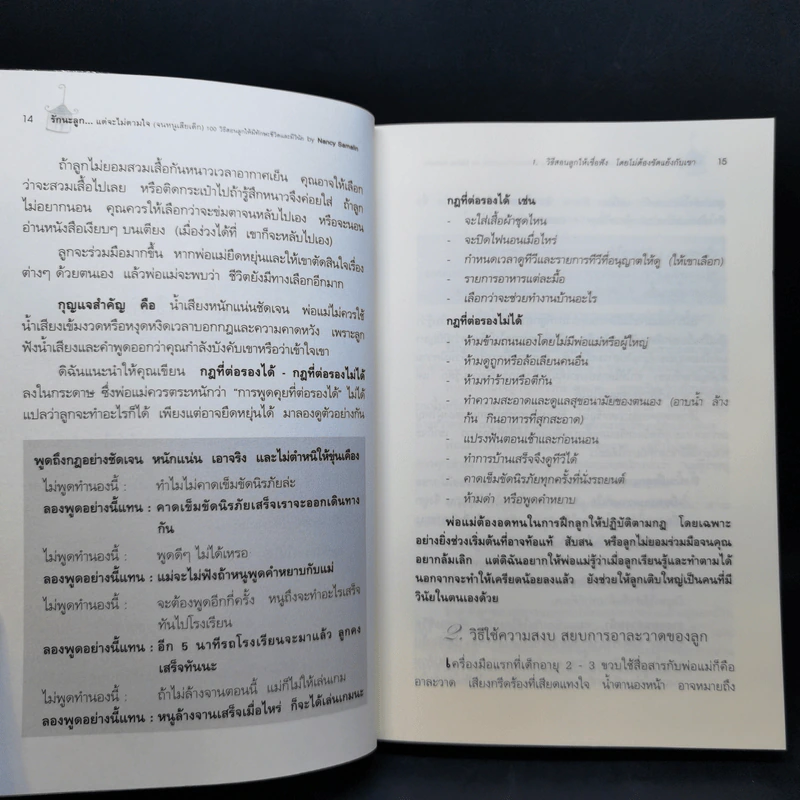 14 รักนะลูก... แต่จะไม่ตามใจ (จนหนูเสียเด็ก) 100 วิธีสอนลูกให้มีทักษะชีวิตและมีวินัย by Nancy Samalin
ถ้าลูกไม่ยอมสวมเสื้อกันหนาวเวลาอากาศเย็น คุณอาจให้เลือก
ว่าจะสวมเสื้อไปเลย หรือติดกระเป๋าไปถ้ารู้สึกหนาวจึงค่อยใส่ ถ้าลูก
ไม่อยากนอน คุณควรให้เลือกว่าจะข่มตาจนหลับไปเอง หรือจะนอน
อ่านหนังสือเงียบๆ บนเตียง (เมื่อง่วงได้ที่ เขาก็จะหลับไปเอง)
ลูกจะร่วมมือมากขึ้น หากพ่อแม่ยืดหยุ่นและให้เขาตัดสินใจเรื่อง
ต่างๆ ด้วยตนเอง แล้วพ่อแม่จะพบว่า ชีวิตยังมีทางเลือกอีกมาก
กุญแจสำคัญ คือ น้ำเสียงหนักแน่นชัดเจน พ่อแม่ไม่ควรใช้
น้ำเสียงเข้มงวดหรือหงุดหงิดเวลาบอกกฎและความคาดหวัง เพราะลูก
ฟังน้ำเสียงและคำพูดออกว่าคุณกำลังบังคับเขาหรือว่าเข้าใจเขา
ดิฉันแนะนำให้คุณเขียน กฎที่ต่อรองได้ - กฎที่ต่อรองไม่ได้
ลงในกระดาษ ซึ่งพ่อแม่ควรตระหนักว่า "การพูดคุยที่ต่อรองได้" ไม่ได้
แปลว่าลูกจะทำอะไรก็ได้ เพียงแต่อาจยืดหยุ่นได้ มาลองดูตัวอย่างกัน
พูดถึงกฎอย่างชัดเจน หนักแน่น เอาจริง และไม่ตำหนิให้ขุ่นเคือง
ไม่พูดทำนองนี้ : ทำไมไม่คาดเข็มขัดนิรภัยล่ะ
ลองพูดอย่างนี้แทน : คาดเข็มขัดนิรภัยเสร็จเราจะออกเดินทาง
กัน
ไม่พูดทำนองนี้ : พูดดีๆ ไม่ได้เหรอ
ลองพูดอย่างนี้แทน : แม่จะไม่ฟังถ้าหนูพูดคำหยาบกับแม่
ไม่พูดทำนองนี้ : จะต้องพูดอีกกี่ครั้ง หนูถึงจะทำอะไรเสร็จ
ทันไปโรงเรียน
ลองพูดอย่างนี้แทน : อีก 5 นาทีรถโรงเรียนจะมาแล้ว ลูกคง
เสร็จทันนะ
ไม่พูดทำนองนี้ : ถ้าไม่ล้างจานตอนนี้ แม่ก็ไม่ให้เล่นเกม
ลองพูดอย่างนี้แทน : หนูล้างจานเสร็จเมื่อไหร่ ก็จะได้เล่นเกมนะ
1. วิธีสอนลูกให้เชื่อฟัง โดยไม่ต้องขัดแย้งกับเขา 15
กฎที่ต่อรองได้ เช่น
- จะใส่เสื้อผ้าชุดไหน
- จะปิดไฟนอนเมื่อไหร่
- กำหนดเวลาดูทีวีและรายการทีวีที่อนุญาตให้ดู (ให้เขาเลือก)
- รายการอาหารแต่ละมื้อ
- เลือกว่าจะช่วยทำงานบ้านอะไร
กฎที่ต่อรองไม่ได้
- ห้ามข้ามถนนเองโดยไม่มีพ่อแม่หรือผู้ใหญ่
- ห้ามดูถูกหรือล้อเลียนคนอื่น
- ห้ามทำร้ายหรือตีกัน
- ทำความสะอาดและดูแลสุขอนามัยของตนเอง (อาบน้ำ ล้าง
ก้น กินอาหารที่สุกสะอาด)
- แปรงฟันตอนเช้าและก่อนนอน
- ทำการบ้านเสร็จจึงดูทีวีได้
- คาดเข็มขัดนิรภัยทุกครั้งที่นั่งรถยนต์
- ห้ามด่า หรือพูดคำหยาบ
พ่อแม่ต้องอดทนในการฝึกลูกให้ปฏิบัติตามกฎ โดยเฉพาะ
อย่างยิ่งช่วงเริ่มต้นที่อาจท้อแท้ สับสน หรือลูกไม่ยอมร่วมมือจนคุณ
อยากล้มเลิก แต่ดิฉันอยากให้พ่อแม่รู้ว่าเมื่อลูกเรียนรู้และทำตามได้
นอกจากจะทำให้เครียดน้อยลงแล้ว ยังช่วยให้ลูกเติบใหญ่เป็นคนที่มี
วินัยในตนเองด้วย
2. วิธีใช้ความสงบ สยบการอาละวาดของลูก
เครื่องมือแรกที่เด็กอายุ 2 - 3 ขวบใช้สื่อสารกับพ่อแม่ก็คือ
อาละวาด เสียงกรีดร้องที่เสียดแทงใจ น้ำตานองหน้า อาจหมายถึง